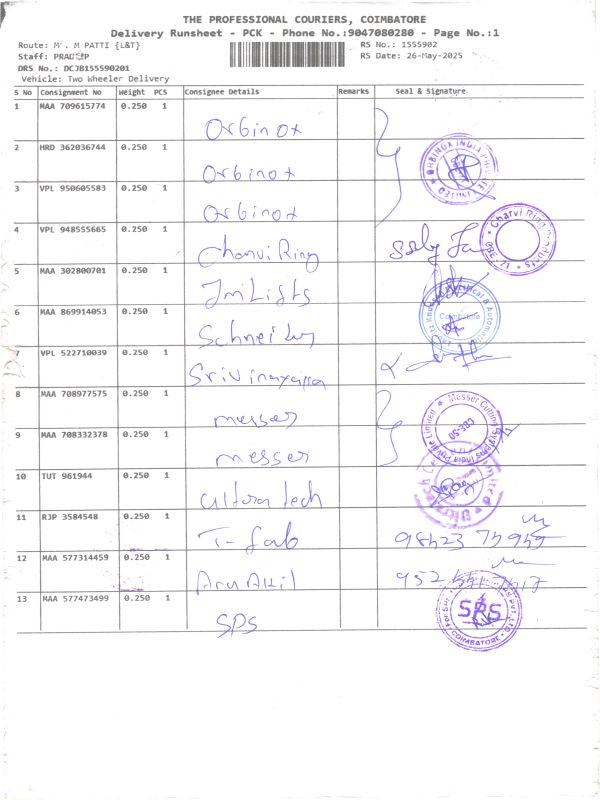 THE PROFESSIONAL COURIERS, COIMBATORE
Delivery Runsheet - PCK - Phone No.:9047080280 - Page No.:1
Route: M . M PATTI {L&T} RS No.: 1555902
Staff: PRADEEP RS Date: 26-May-2025
DRS No.: DCJB155590201
Vehicle: Two Wheeler Delivery
S No Consignment No Weight PCS Consignee Details Remarks Seal & Signature
1 MAA 709615774 0.250 1 Orbinox
2 HRD 362036744 0.250 1 Orbinox
ORBINOX INDIA PRIVATE LIMITED
3 VPL 950605583 0.250 1 Orbinox
4 VPL 948555665 0.250 1 Charvi Ring
Charvi Ring
5 MAA 302800701 0.250 1
6 MAA 869914053 0.250 1 Schneider
Coimbatore
7 VPL 522710039 0.250 1 Srivinayaga
8 MAA 708977575 0.250 1 messer
Messer Cutting Systems India Private Limited
CBE-50
9 MAA 708332378 0.250 1 messer
10 TUT 961944 0.250 1 ultra tech
11 RJP 3584548 0.250 1 T-fab
12 MAA 577314459 0.250 1
13 MAA 577473499 0.250 1 SPS
SPS
COIMBATORE